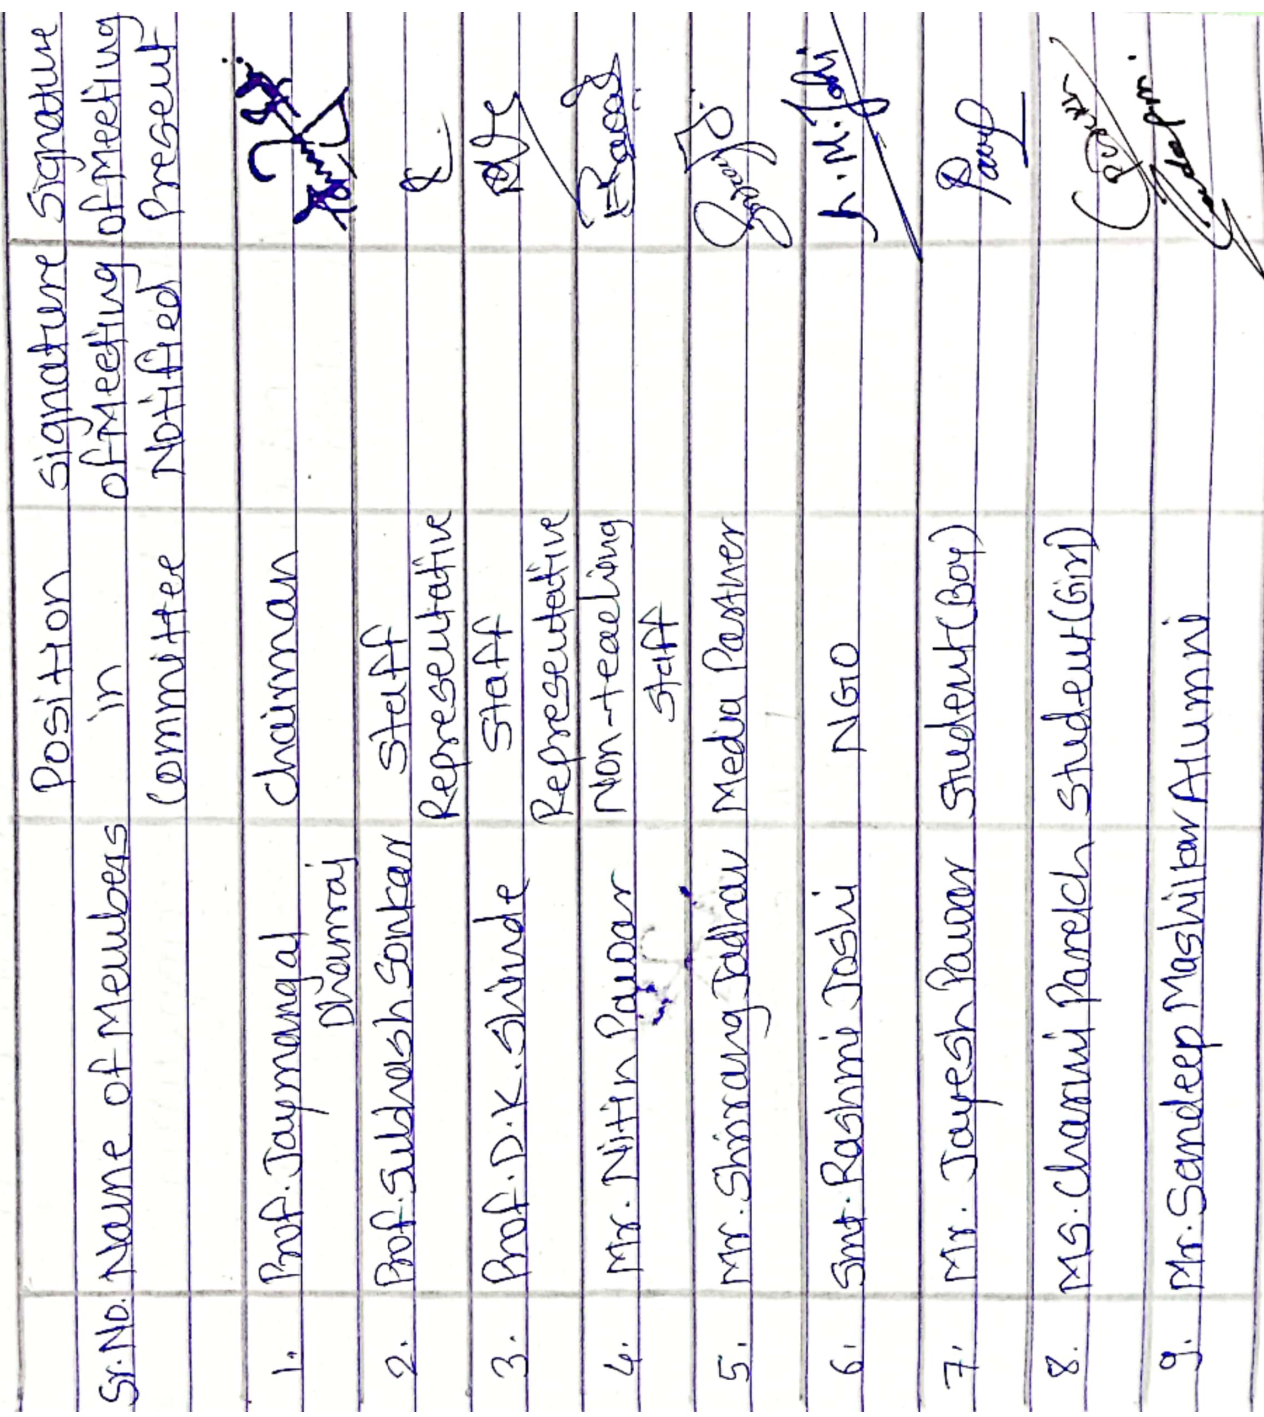 Sr.No. Name of Members Position in Committee Signature of Meeting Notified Signature of Meeting Present
1. Prof. Jaymangal Dhanraj Chairman
2. Prof. Subhash Sonkar Staff Representative
3. Prof. D.K. Shinde Staff Representative
4. Mr. Nitin Pawar Non-teaching Staff
5. Mr. Shrirang Jadhav Media Partner
6. Smt. Rashmi Joshi NGO
7. Mr. Jayesh Pawar Student (Boy)
8. Ms. Charmi Parekh Student (Girl)
9. Mr. Sandeep Mashilkar Alumni